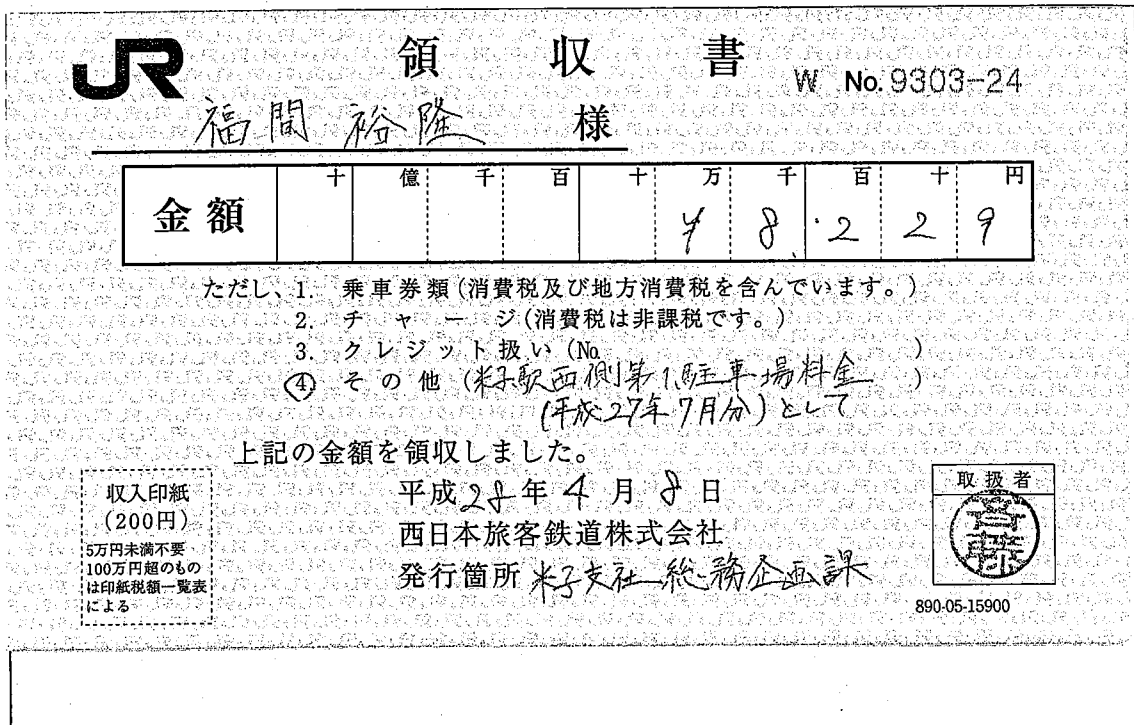 JR 領収書 W No. 9303-24
福間 裕隆 様
十 億 千 百 十 万 千 百 十 円
金額 ¥ 8 2 2 9
ただし、1. 乗車券類(消費税及び地方消費税を含んでいます。)
2. チャージ(消費税は非課税です。)
3. クレジット扱い(No. )
④ その他(米子駅西側第1駐車場料金)
(平成27年7月分)として
上記の金額を領収しました。
平成28年4月8日
西日本旅客鉄道株式会社
発行箇所 米子支社総務企画課
収入印紙
(200円)
5万円未満不要
100万円超のもの
は印紙税額一覧表
による
取扱者
斉藤
890-05-15900